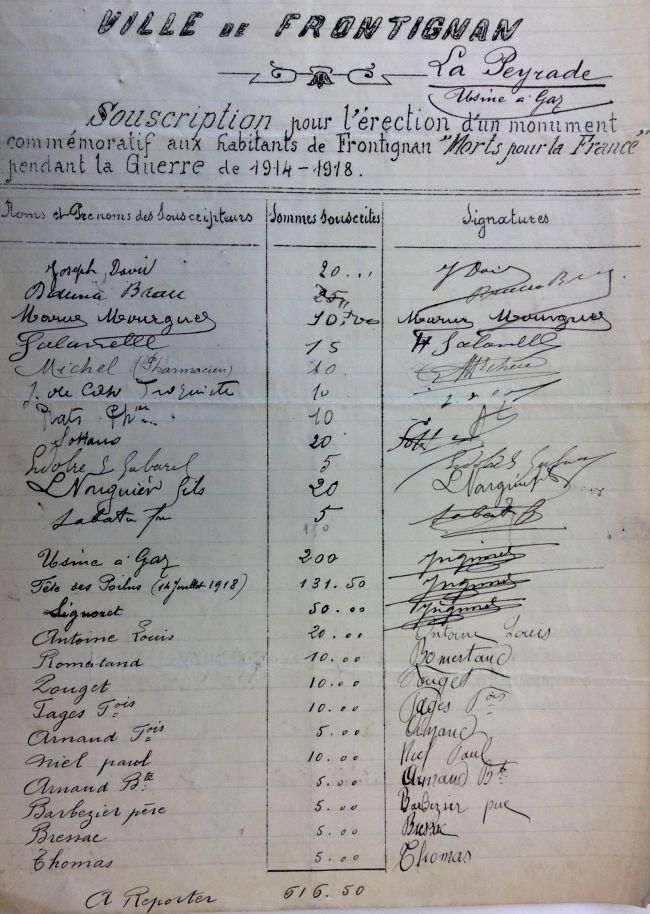 VILLE DE FRONTIGNAN
La Peyrade
Usine à Gaz
Souscription pour l'érection d'un monument
commémoratif aux habitants de Frontignan "Morts pour la France"
pendant la Guerre de 1914-1918.
Noms et Prenoms des Souscripteurs Sommes Souscrites Signatures
Joseph David 20... J David
Brau 25
Marius Mourgues 10.00 Marius Mourgues
15
Michel (Pharmacien) 10
10
Rats Ph. 10
Sottano 20
5
L Nouguier fils 20 L Nouguier
Sabatier 5 Sabatier
150
Usine à Gaz 200
Fête des Poilus (14 Juillet 1918) 131.50
Signoret 50.00
Antoine Louis 20.00 Antoine Louis
10.00
Rouget 10.00 Rouget
Pages Fois 10.00 Pagès Fois
Arnaud Fois 5.00 Arnaud
Niel paul 10.00 Niel Paul
Arnaud Bte 5.00 Arnaud Bte
Barbezier père 5.00 Barbezier père
Bressac 5.00 Bressac
Thomas 5.00 Thomas
A Reporter 616.50